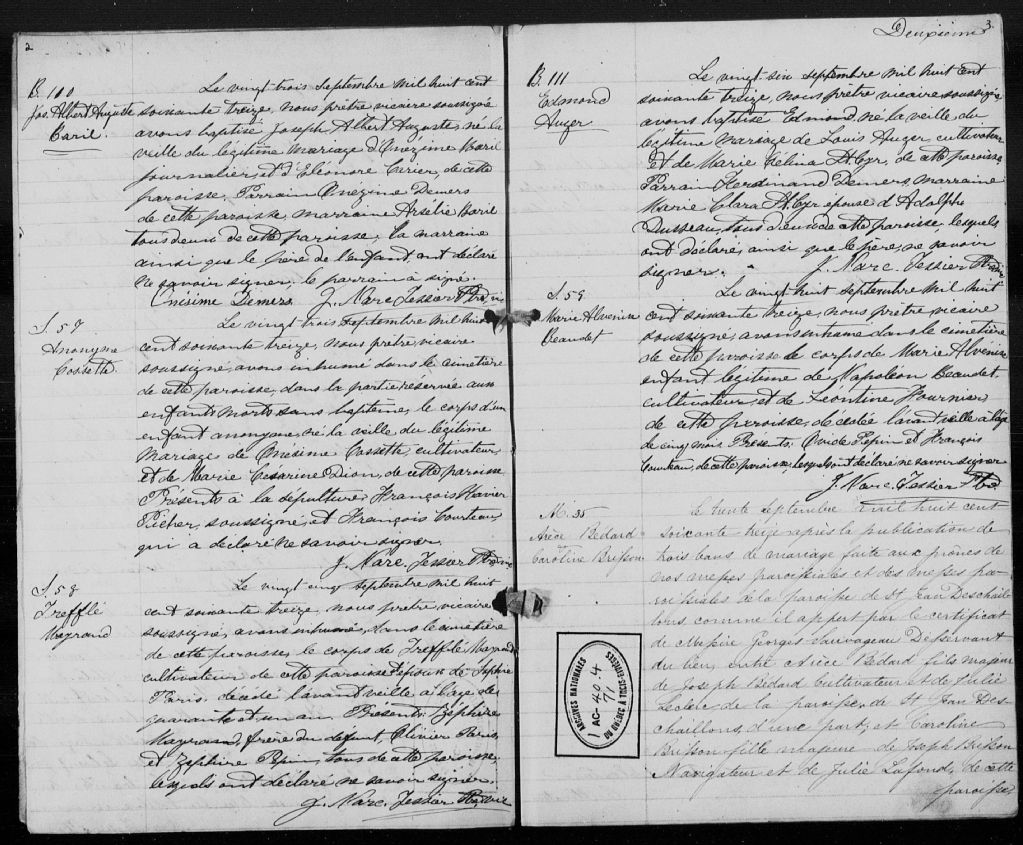 2
B. 110
Jos. Albert Auguste
Baril.
Le vingt trois septembre mil huit cent
soixante treize, nous prêtre vicaire soussigné
avons baptisé Joseph Albert Auguste, né la
veille du légitime mariage d'Onezime Baril
journalier, et d'Eléonore Cirier, de cette
paroisse, Parrain Onezine Demers
de cette paroisse, marraine Arsélie Baril
tous deux de cette paroisse, la marraine
ainsi que le père de l'enfant, ont déclaré
ne savoir signer, le parrain a signé.
Onésime Demers J. Narc. Tessier Ptre vic
S. 57
Anonyme
Cossette
Le vingt trois septembre mil huit
cent soixante treize, nous prêtre vicaire
soussigné, avons inhumé dans le cimetière
de cette paroisse, dans la partie réservée aux
enfants morts sans baptême, le corps d'un
enfant anonyme, né la veille du légitime
mariage de Onésime Cossette cultivateur
et de Marie Césarine Dion, de cette paroisse
Présents à la sépulture, François Xavier
Picher, soussigné, et François Courteau,
qui a déclaré ne savoir signer.
J. Narc. Tessier Ptre vic
S. 58
Treffle
Mayrand
Le vingt cinq septembre mil huit
cent soixante treize, nous prêtre vicaire
soussigné, avons inhumé, dans le cimetière
de cette paroisse, le corps de Trefflé Mayrand
cultivateur de cette paroisse époux de Sophie
Paris, décédé l'avant veille à l'âge de
quarante et un an. Présents: Zéphire
Mayrand, frère du défunt, Olivier Paris,
et Zéphire Pepin, tous de cette paroisse,
lesquels ont déclaré ne savoir signer.
J. Narc. Tessier Ptre vic
Deuxième 3
B. 111
Edmond
Auger
Le vingt-six septembre mil huit cent
soixante treize, nous prêtre vicaire soussigné
avons baptisé Edmond, né la veille du
légitime mariage de Louis Auger cultivateur
et de Marie Célina St. Cyr, de cette paroisse,
Parrain Ferdinand Demers, marraine
Marie Clara St. Cyr épouse d'Adolphe
Dusseau, tous deux de cette paroisse, lesquels
ont déclaré, ainsi que le père, ne savoir
signer. J. Narc. Tessier Ptre vic
S. 59
Marie Alvenise
Beaudet
Le vingt huit septembre mil huit
cent soixante treize, nous prêtre vicaire
soussigné, avons inhumé dans le cimetière
de cette paroisse le corps de Marie Alvénise
enfant légitime de Napoléon Beaudet
cultivateur, et de Léontine Fournier,
de cette paroisse, décédée l'avant veille à l'âge
de cinq mois Présents: Ovide Pepin et François
Courteau, de cette paroisse, lesquels ont déclaré ne savoir signer
J. Narc. Tessier Ptre
M. 35
Aièce Bédard
Caroline Brisson
le trente septembre mil huit cent
soixante treize après la publication de
trois bans de mariage faite aux prônes de
nos messes paroissiales et des messes pa-
roissiales de la paroisse de St Jean Deschail-
lons, comme il appert par le certificat
de Messire Georges Sauvageau Desservant
du lieu, entre Aièce Bédard fils majeur
de Joseph Bédard Cultivateur et de Julie
Leclerc de la paroisse de St Jean Des-
chaillons, d'une part, et Caroline
Brisson fille majeure de Joseph Brisson
Navigateur et de Julie Lafond, de cette
paroisse
ARCHIVES NATIONALES
1 AC-40.4
71
DU QUÉBEC À TROIS-RIVIÈRES